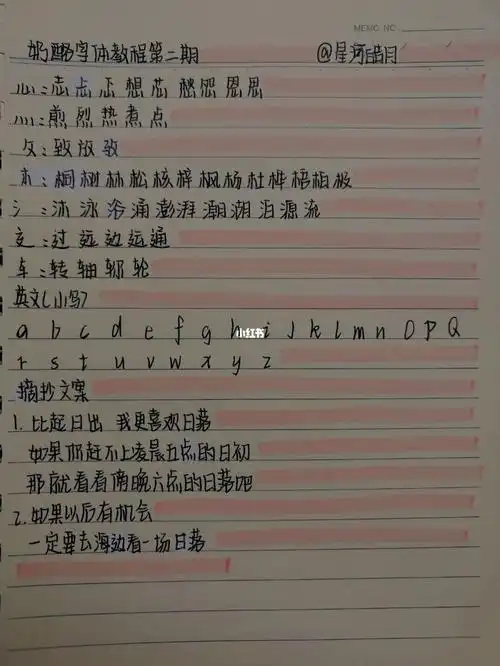 MEMO NO.
奶酪字体教程第二期 @星河皓月
心:志忐忑想芯 愁怨恩思
灬:煎烈热煮点
攵:致放致
木:桐树林松核梓枫杨杜桦梧柏极
氵:沐泳浴涌澎湃潮湖泊源流
辶:过远边运通
车:转轴轮
英文(小写)
a b c d e f g h i J k l m n O P Q
r s t u v w x y z
小红书
摘抄文案
1.比起日出 我更喜欢日落
如果你赶不上凌晨五点的日初
那就看看傍晚六点的日落吧
2.如果以后有机会
一定要去海边看一场日落